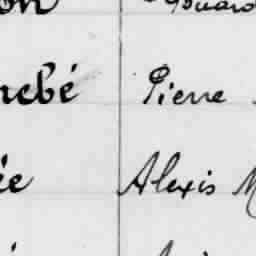 on
nebé Pierre
ée Alexis M